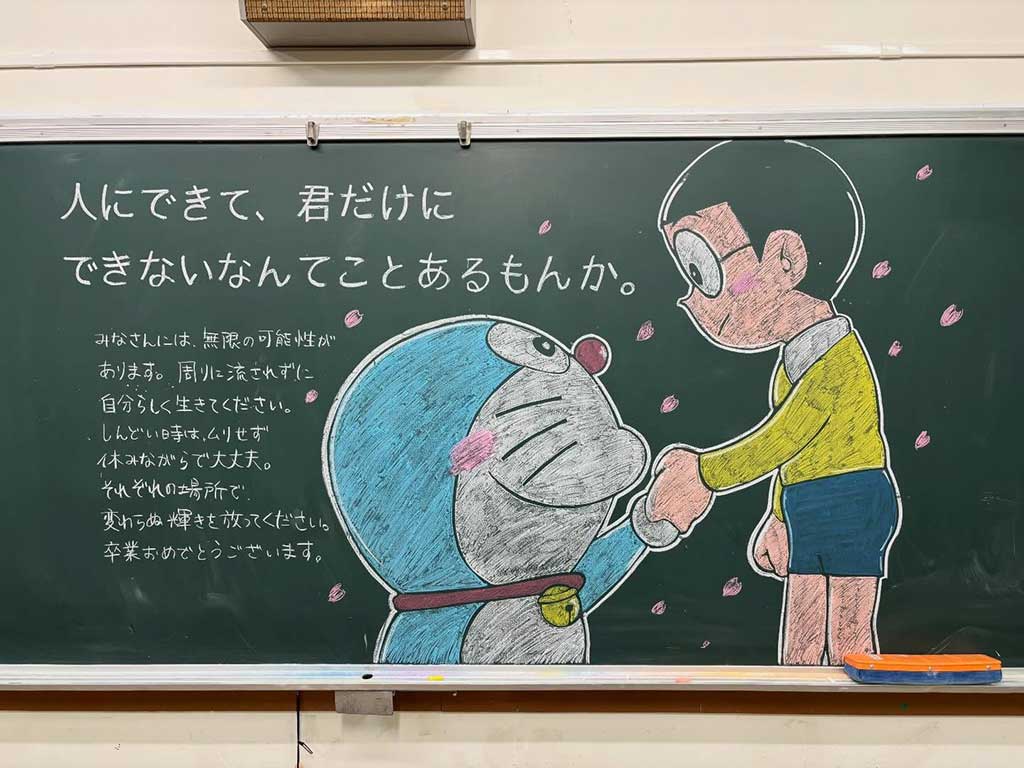 人にできて、君だけに
できないなんてことあるもんか。
みなさんには、無限の可能性が
あります。周りに流されずに
自分らしく生きてください。
しんどい時は、ムリせず
休みながらで大丈夫。
それぞれの場所で、
変わらぬ輝きを放ってください。
卒業おめでとうございます。